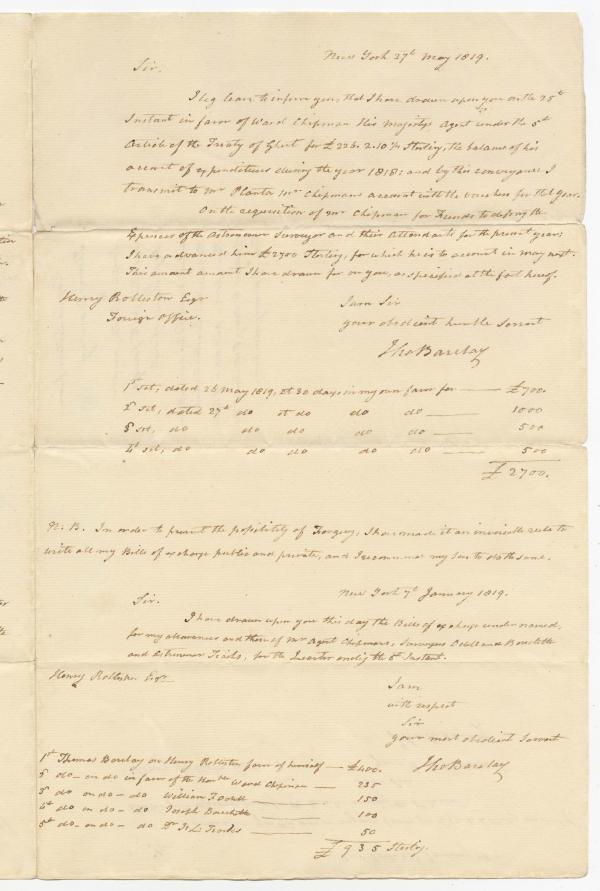 New York 27th May 1819.
Sir.
I beg leave to inform you, that I have drawn upon you on the 25th
Instant in favor of Ward Chipman His Majestys Agent under the 5th
Article of the Treaty of Ghent for £226. 2. 10 Sterling, the balance of his
account of expenditures during the year 1818: and by this conveyance I
transmit to Mr Planta Mr Chipmans account with the vouchers for that year.
On the requisition of Mr Chipman for Funds to defray the
Expences of the Astronomer Surveyor and their Attendants for the present year;
I have advanced him £2700 Sterling, for which he is to account in may next.
This amount amount I have drawn for on you, as specified at the foot hereof.
Henry Rolleston Esqr
Foreign Office.
I am Sir
your obedient humble Servant
Tho Barclay
1st set, dated 26 May 1819, at 30 days in my own favor for £700.
2d set, dated 27th do at do do do 1000
3d set, do do do do do 500
4th set, do do do do do 500
£2700.
N: B. In order to prevent the possibility of Forgery, I have made it an invincible rule to
write all my Bills of exchange public and private, and I recommend my Son to do the same.
New York 7th January 1819.
Sir.
I have drawn upon you this day the Bills of exchange under named,
for my allowances and those of Mr Agent Chipmans, Surveyors Odell and Bouchette
and Astronomer Tiarks, for the Quarter ending the 5th Instant.
Henry Rolleston Esqr
I am
with respect
Sir
your most obedient Servant
Tho Barclay
1st Thomas Barclay on Henry Rolleston favor of himself £400.
2d do - on do in favor of the Honble Ward Chipman 235
3d do on do - do William F Odell 150
4th do on do - do Joseph Bouchette 100
5th do - on do - do Dr Tiarks 50
£935 Sterling.